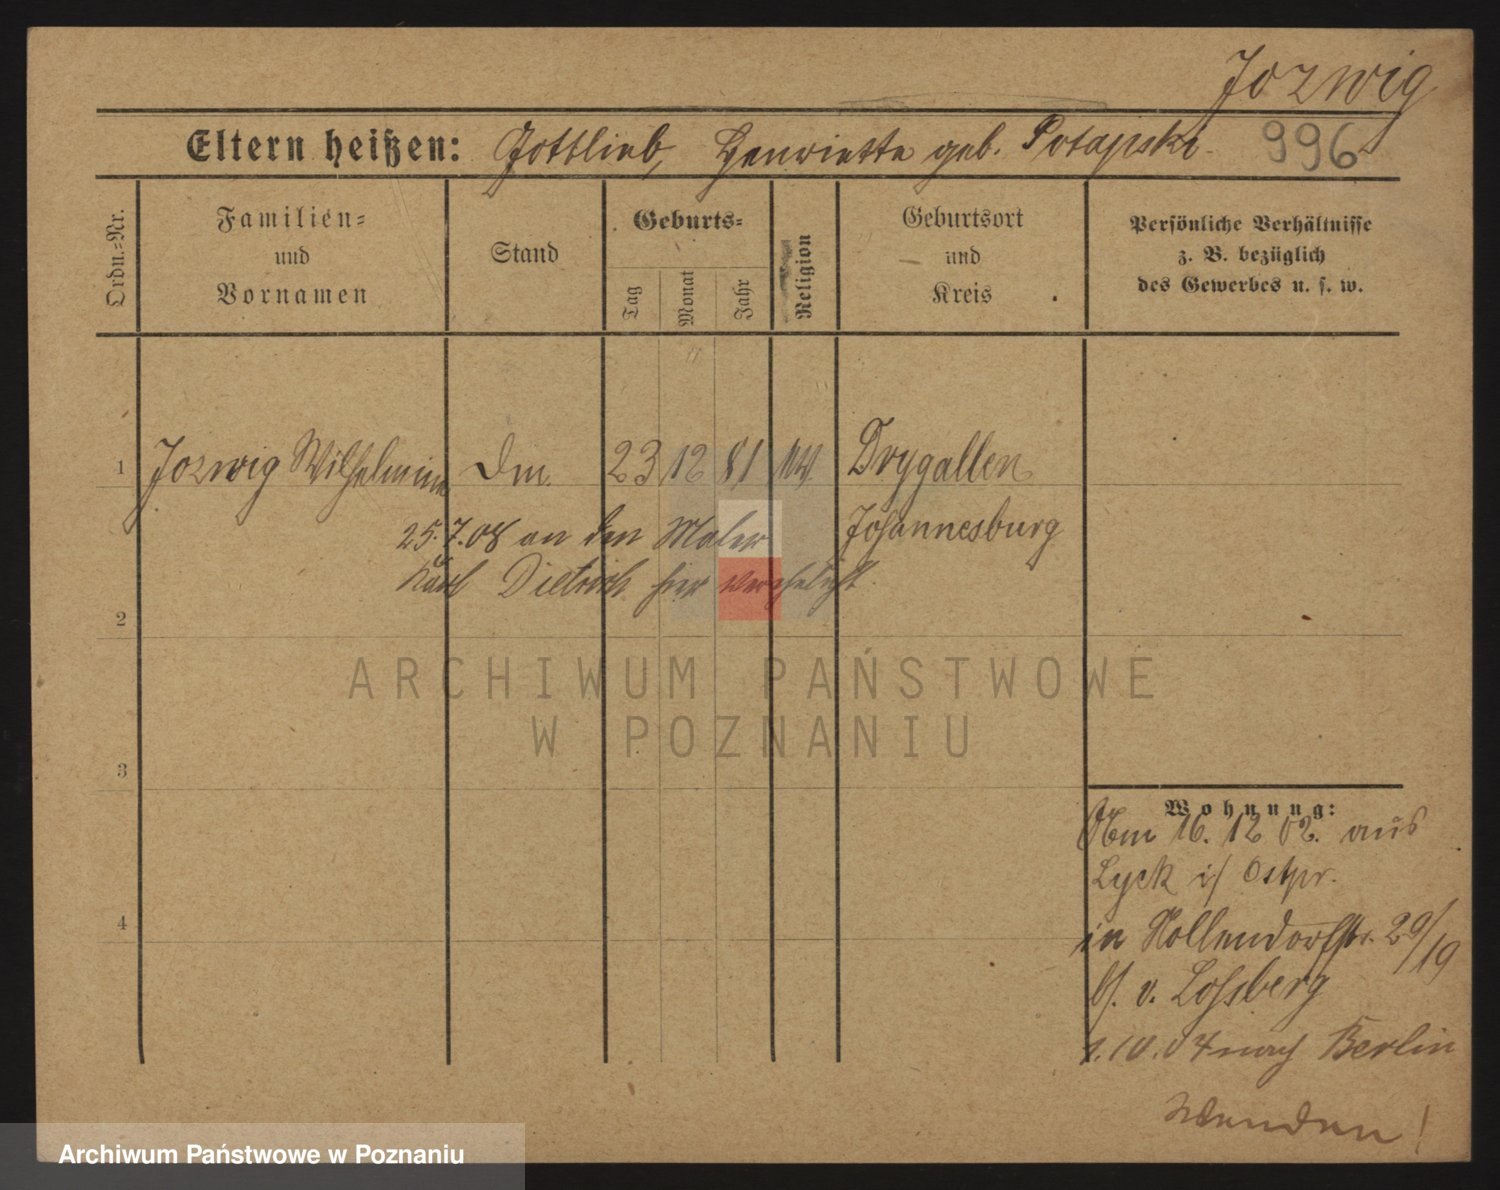 Jozwig
Eltern heißen: Gottlieb, Henriette geb. Potapski 996
Ordn.=Nr.
Familien=
und
Vornamen
Stand
Geburts=
Tag
Monat
Jahr
Religion
Geburtsort
und
Kreis
Persönliche Verhältnisse
z. B. bezüglich
des Gewerbes u. s. w.
1 Jozwig Wilhelmine 23 12 81 Drygallen
25.7.08 an den Maler Johannesburg
Karl Dietrich hier verehelicht.
2
3
4
Wohnung:
16. 12 02. aus
Lyck i/ Ostpr.
in Nollendorfstr. 29/19
b/. v. Lossberg
1.10.04 nach Berlin
Wenden!
ARCHIWUM PAŃSTWOWE
W POZNANIU
Archiwum Państwowe w Poznaniu